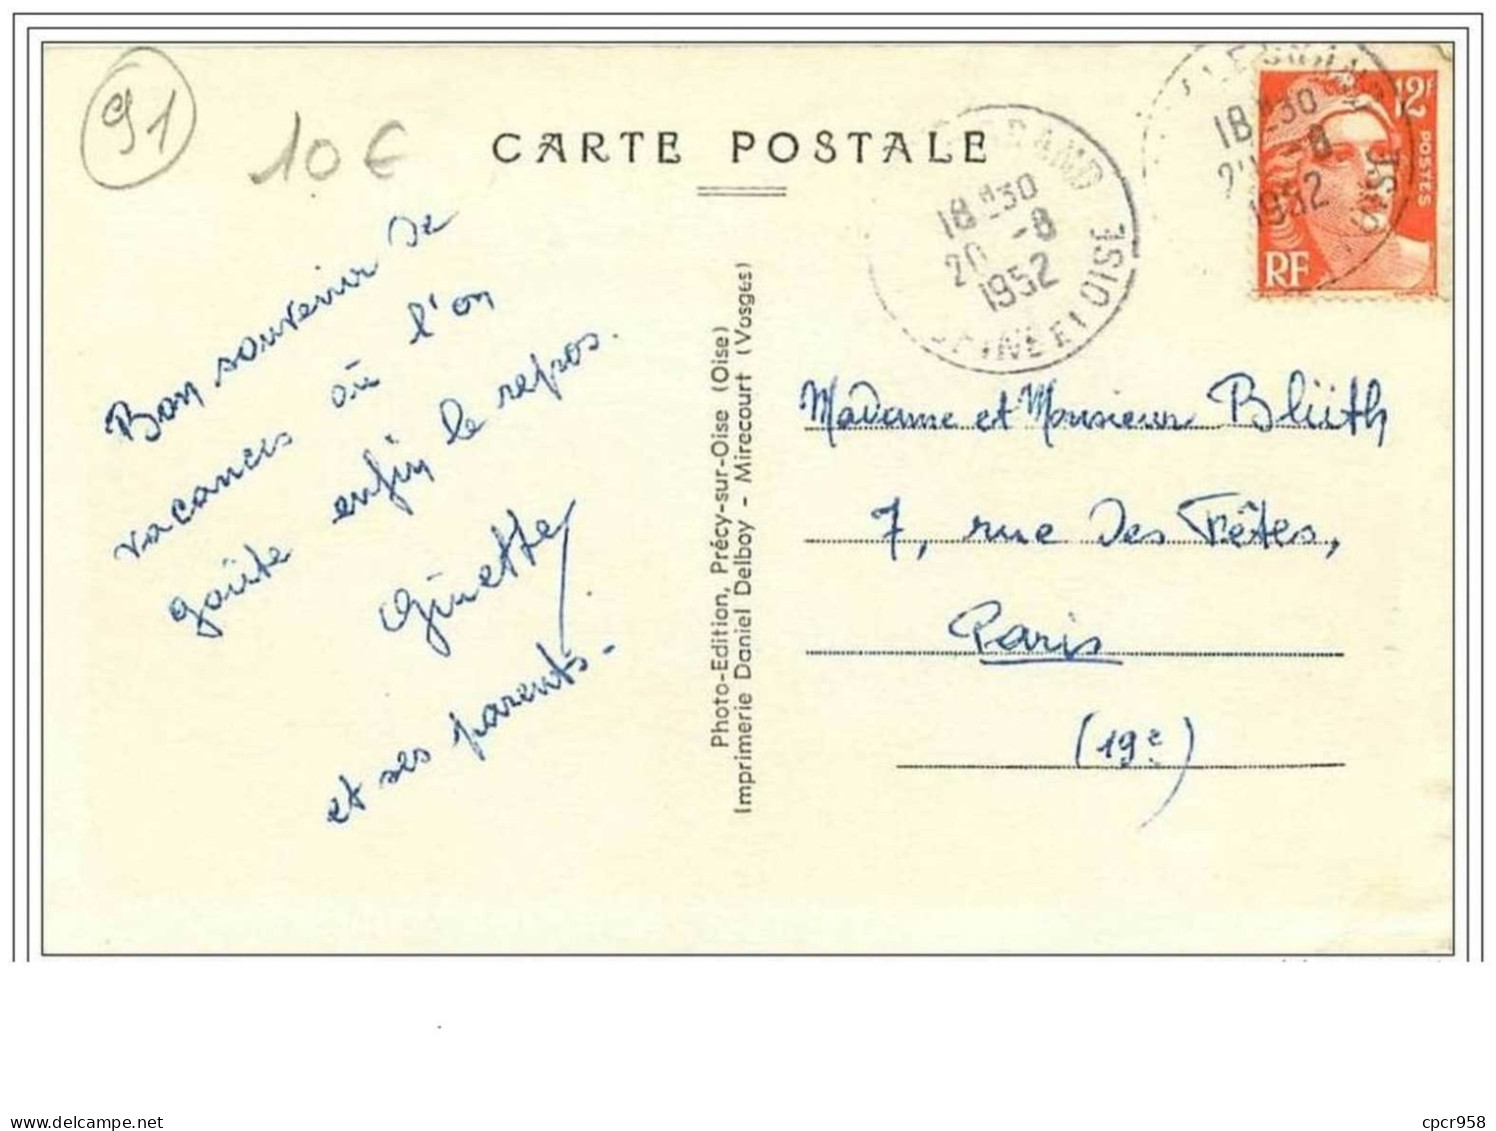 91
10 €
CARTE POSTALE
18H30
20 -8
1952
SEINE ET OISE
18H30
-8
1952
OISE
12F
POSTES
RF
Bon souvenir de
vacances où l'on
goûte enfin le repos.
Ginette
et ses parents.
Photo-Edition, Précy-sur-Oise (Oise)
Imprimerie Daniel Delboy - Mirecourt (Vosges)
Madame et Monsieur Blüth
7, rue des Fêtes,
Paris
(19e)
cpcr958